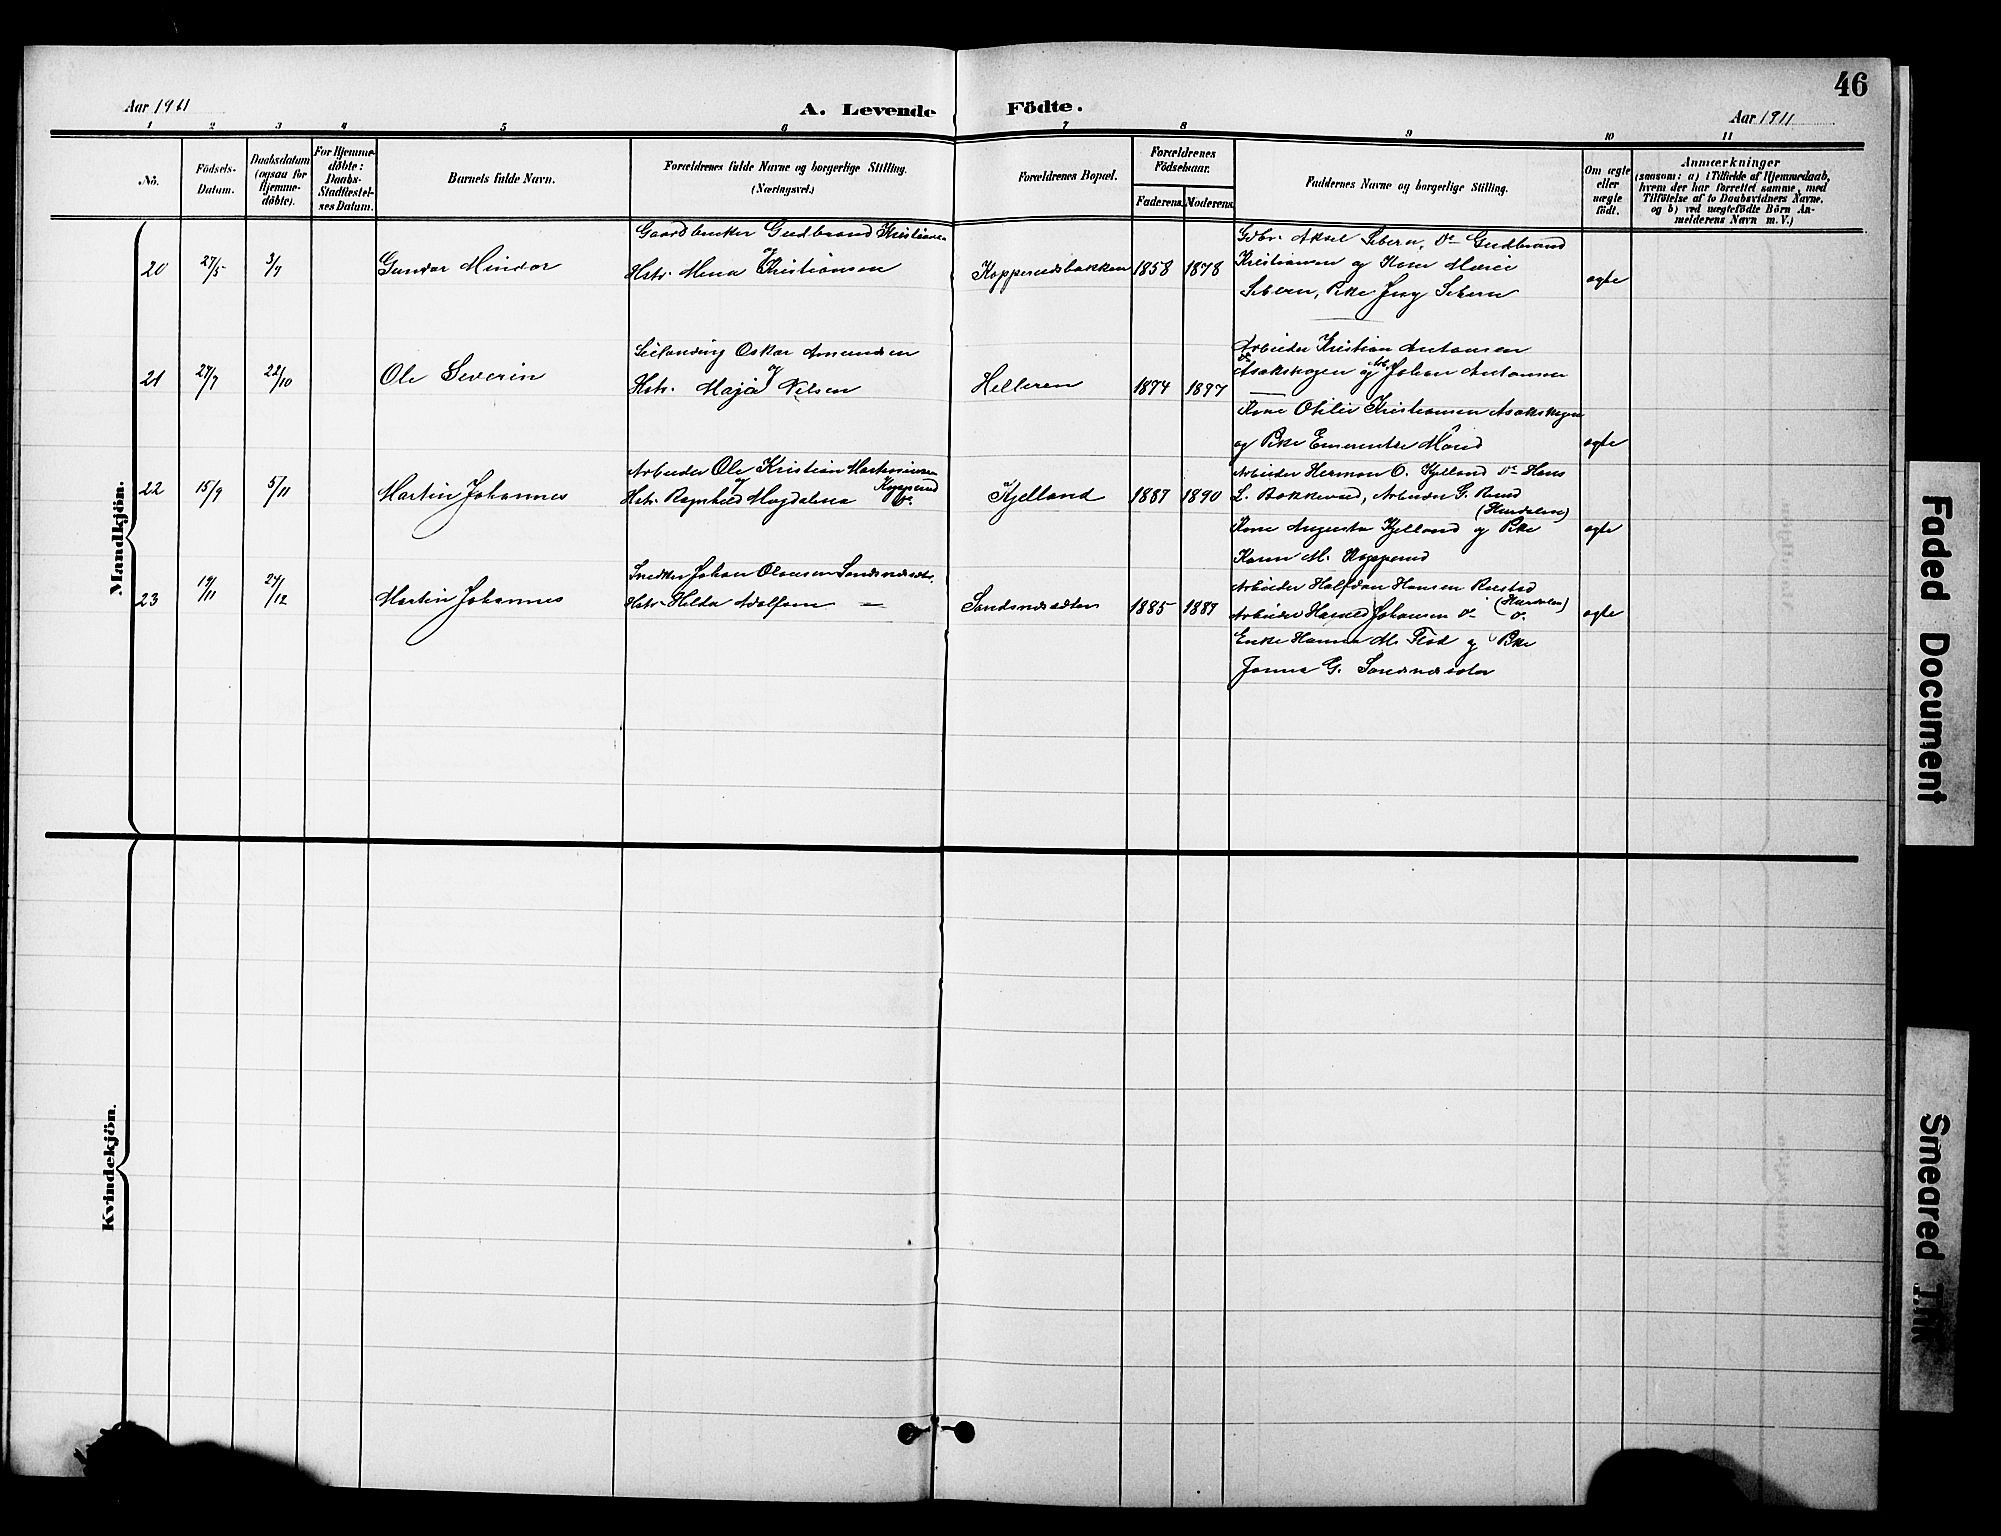 46
Aar 1911
A. Levende Födte.
Aar 1911
1 2 3 4 5 6 7 8 9 10 11
No.
Födsels-Datum.
Daabsdatum (ogsaa for Hjemme-döbte).
For Hjemme-döbte: Daabs-Stadfæstel-ses Datum.
Barnets fulde Navn.
Forældrenes fulde Navne og borgerlige Stilling.
(Næringsvei.)
Forældrenes Bopæl.
Forældrenes Födselsaar.
Faderens. Moderens.
Faddernes Navne og borgerlige Stilling.
Om ægte eller uægte födt.
Anmærkninger
(saasom: a) i Tilfælde af Hjemmedaab,
hvem der har forrettet samme, med
Tilföielse af to Daabsvidners Navne.
og b) ved uægtefödte Börn An-
melderens Navn m. V.)
Mandkjön.
20 27/5 3/7 Gunvor Mindor
Gaardbruker Gudbrand Kristiansen
og
Hstr. Mena Kristiansen
Kopperudsbakken 1858 1878
Gdbr. Aksel Sibern, Do Gudbrand
Kristiansen og Kone Marie
Sibern, Pike Jeny Sibern
ægte
21 27/7 22/10 Ole Severin
Oskar Amundsen
og
Hstr. Maja Nilsen
Helleren 1874 1897
Arbeider Kristian Antonsen
Asakskogen og Arb. Johan Antonsen
Kone Otilie Kristiansen Asakskogen
og Pike Emerentse
ægte
22 15/9 5/11 Martin Johannes
Arbeider Ole Kristian Martinsen
og Kopperud
Hstr. Ragnhild Magdalena Do.
Kjelland 1887 1890
Arbeider Herman O. Kjelland Do Hans
L. Bakkerud, Arbeider G. Ruud
(Hurdalen)
Kone Augusta Kjelland og Pike
Karen M. Kopperud
ægte
23 19/11 24/12 Martin Johannes
Snedker Johan Olausen Sandsnæseter
Hstr. Hilda Adolfsen —
Sandsnæseter 1885 1887
Arbeider Halfdan Hansen Rustad
(Hurdalen)
Arbeider Harald Johansen Do Do.
Enke Hanna M. Flod og Pike
Janna G. Sandsnæseter
ægte
Kvindekjön.
Faded Document
Smeared Ink